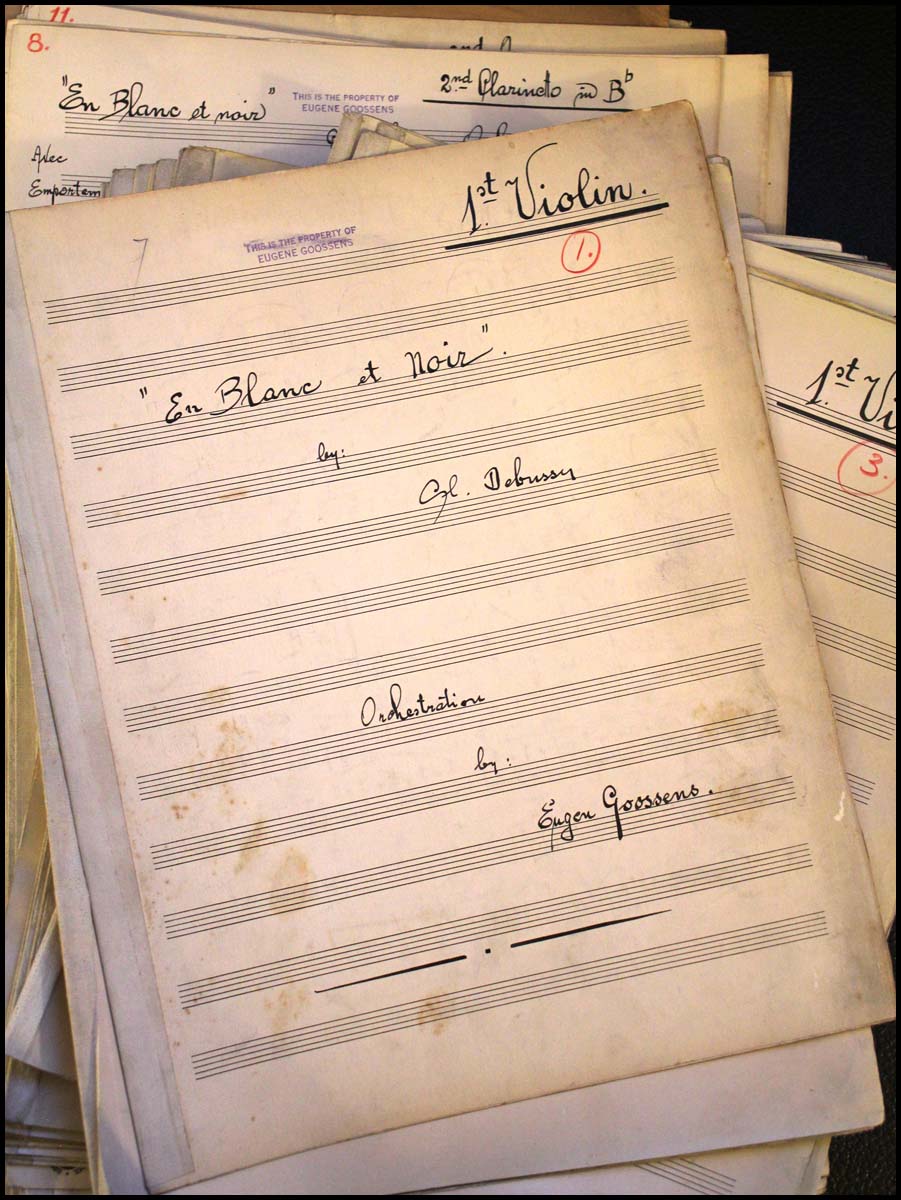 11.
8.
2nd Clarinetto in Bb
"En Blanc et noir"
THIS IS THE PROPERTY OF
EUGENE GOOSSENS
Avec
Emportem
1st Violin.
1.
7
THIS IS THE PROPERTY OF
EUGENE GOOSSENS
"En Blanc et Noir".
by:
Cl. Debussy
Orchestration
by:
Eugen Goossens.
1st Vi
3.